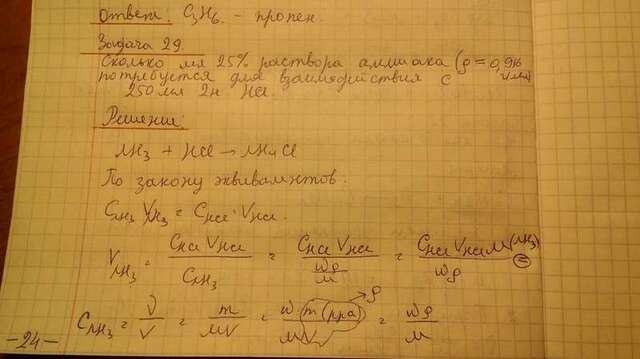 Ответ: C₃H₆ – пропен.
Задача 29.
Сколько мл 25% раствора аммиака (ρ = 0,916 г/мл)
потребуется для взаимодействия с
250 мл 2н HCl.
Решение:
NH₃ + HCl → NH₄Cl
По закону эквивалентов:
C_NH₃ V_NH₃ = C_HCl · V_HCl.
V_NH₃ = C_HCl V_HCl / C_NH₃ = C_HCl V_HCl / (wρ / M) = C_HCl V_HCl M(NH₃) / wρ =
C_NH₃ = ν / V = m / MV = w m(р-ра) / MV = wρ / M
ρ
-24-